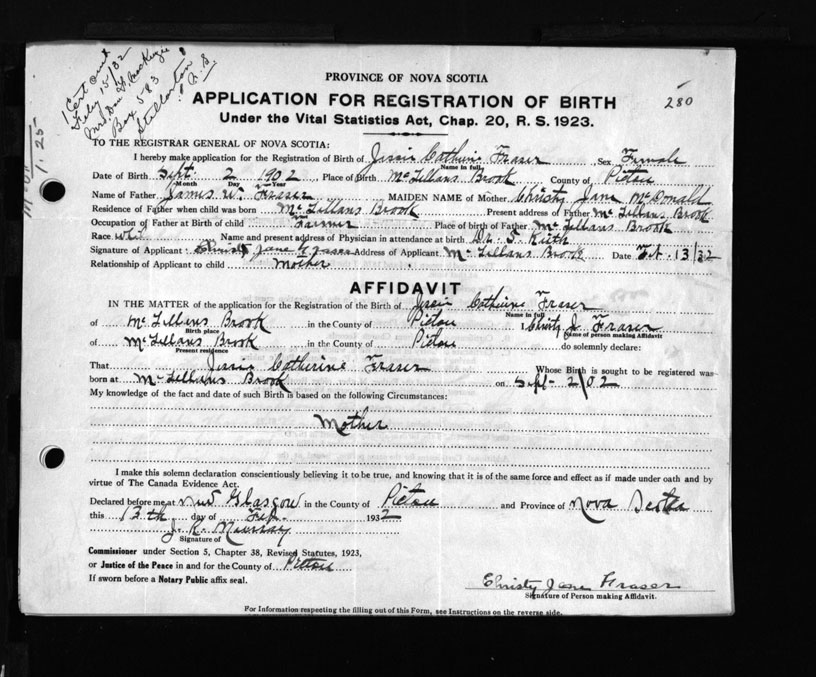 1 Cert out
Feby 15/32
Mrs. Dan H. MacKenzie
Box 583
Stellarton
N. S.
1.25
PROVINCE OF NOVA SCOTIA
280
APPLICATION FOR REGISTRATION OF BIRTH
Under the Vital Statistics Act, Chap. 20, R. S. 1923.
TO THE REGISTRAR GENERAL OF NOVA SCOTIA:
I hereby make application for the Registration of Birth of Jessie Catherine Fraser, Sex Female
Name in full
Date of Birth Sept 2 1902 Place of Birth McLellans Brook County of Pictou
Month Day Year
Name of Father James W. Fraser MAIDEN NAME of Mother Christy Jane McDonald
Residence of Father when child was born McLellans Brook Present address of Father McLellans Brook
Occupation of Father at Birth of child Farmer Place of birth of Father McLellans Brook
Race Name and present address of Physician in attendance at birth Dr. Keith
Signature of Applicant Christy Jane Fraser Address of Applicant McLellans Brook Date Feb. 13/32
Relationship of Applicant to child Mother
AFFIDAVIT
IN THE MATTER of the application for the Registration of the Birth of Jessie Catherine Fraser
Name in full
of McLellans Brook in the County of Pictou I, Christy J. Fraser
Birth place Name of person making Affidavit
of McLellans Brook in the County of Pictou do solemnly declare:
Present residence
That Jessie Catherine Fraser Whose Birth is sought to be registered was
born at McLellans Brook on Sept- 2/02
My knowledge of the fact and date of such Birth is based on the following Circumstances:
Mother
I make this solemn declaration conscientiously believing it to be true, and knowing that it is of the same force and effect as if made under oath and by
virtue of The Canada Evidence Act.
Declared before me at New Glasgow in the County of Pictou and Province of Nova Scotia
this 13th day of Feb. 1932
J. R. Murray
Signature of
Commissioner under Section 5, Chapter 38, Revised Statutes, 1923,
or Justice of the Peace in and for the County of Pictou
If sworn before a Notary Public affix seal.
Christy Jane Fraser
Signature of Person making Affidavit.
For Information respecting the filling out of this Form, see Instructions on the reverse side.